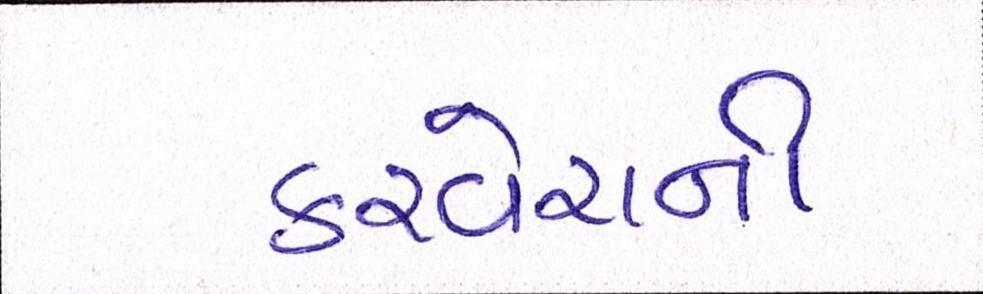 કરવેરાની